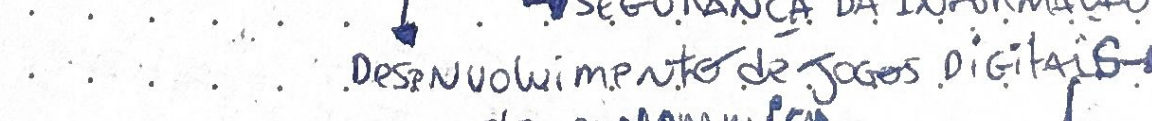 SEGURANÇA DA INFORMAÇÃO
Desenvolvimento de Jogos Digitais